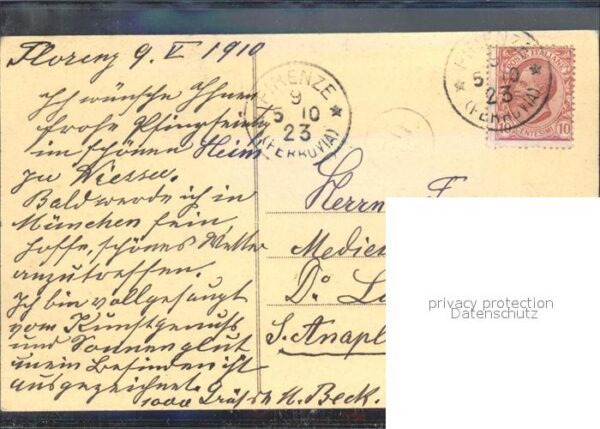 Florenz 9. V 1910
Ich wünsche Ihnen
frohe Pfingsten
im schönen Heim
zu Wiessee.
Bald werde ich in
München sein
hoffe, schönes Wetter
anzutreffen.
Ich bin vollgesaugt
vom Kunstgenuss
und Sonnenglut
mein Befinden ist
ausgezeichnet.
1000 Grüsse M. Beck.
FIRENZE
9
5 10
23
(FERROVIA)
FIRENZE
5 10
23
(FERROVIA)
POSTE ITALIANE
CENTESIMI 10
Herrn F
Medicin
Dr. La
S. Anapl
privacy protection
Datenschutz